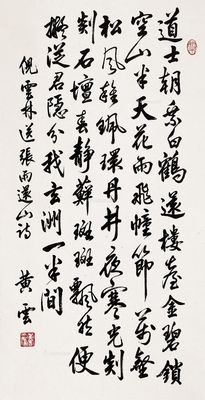 道士朝乘白鶴還樓臺金碧鎖
空山半天花雨飛幢節萬壑
松風雜珮環丹井夜寒光剡
剡石壇春靜蘚斑斑飄然便
擬從君隱分我玄洲一半間
倪雲林送張雨還山詩
黃雲